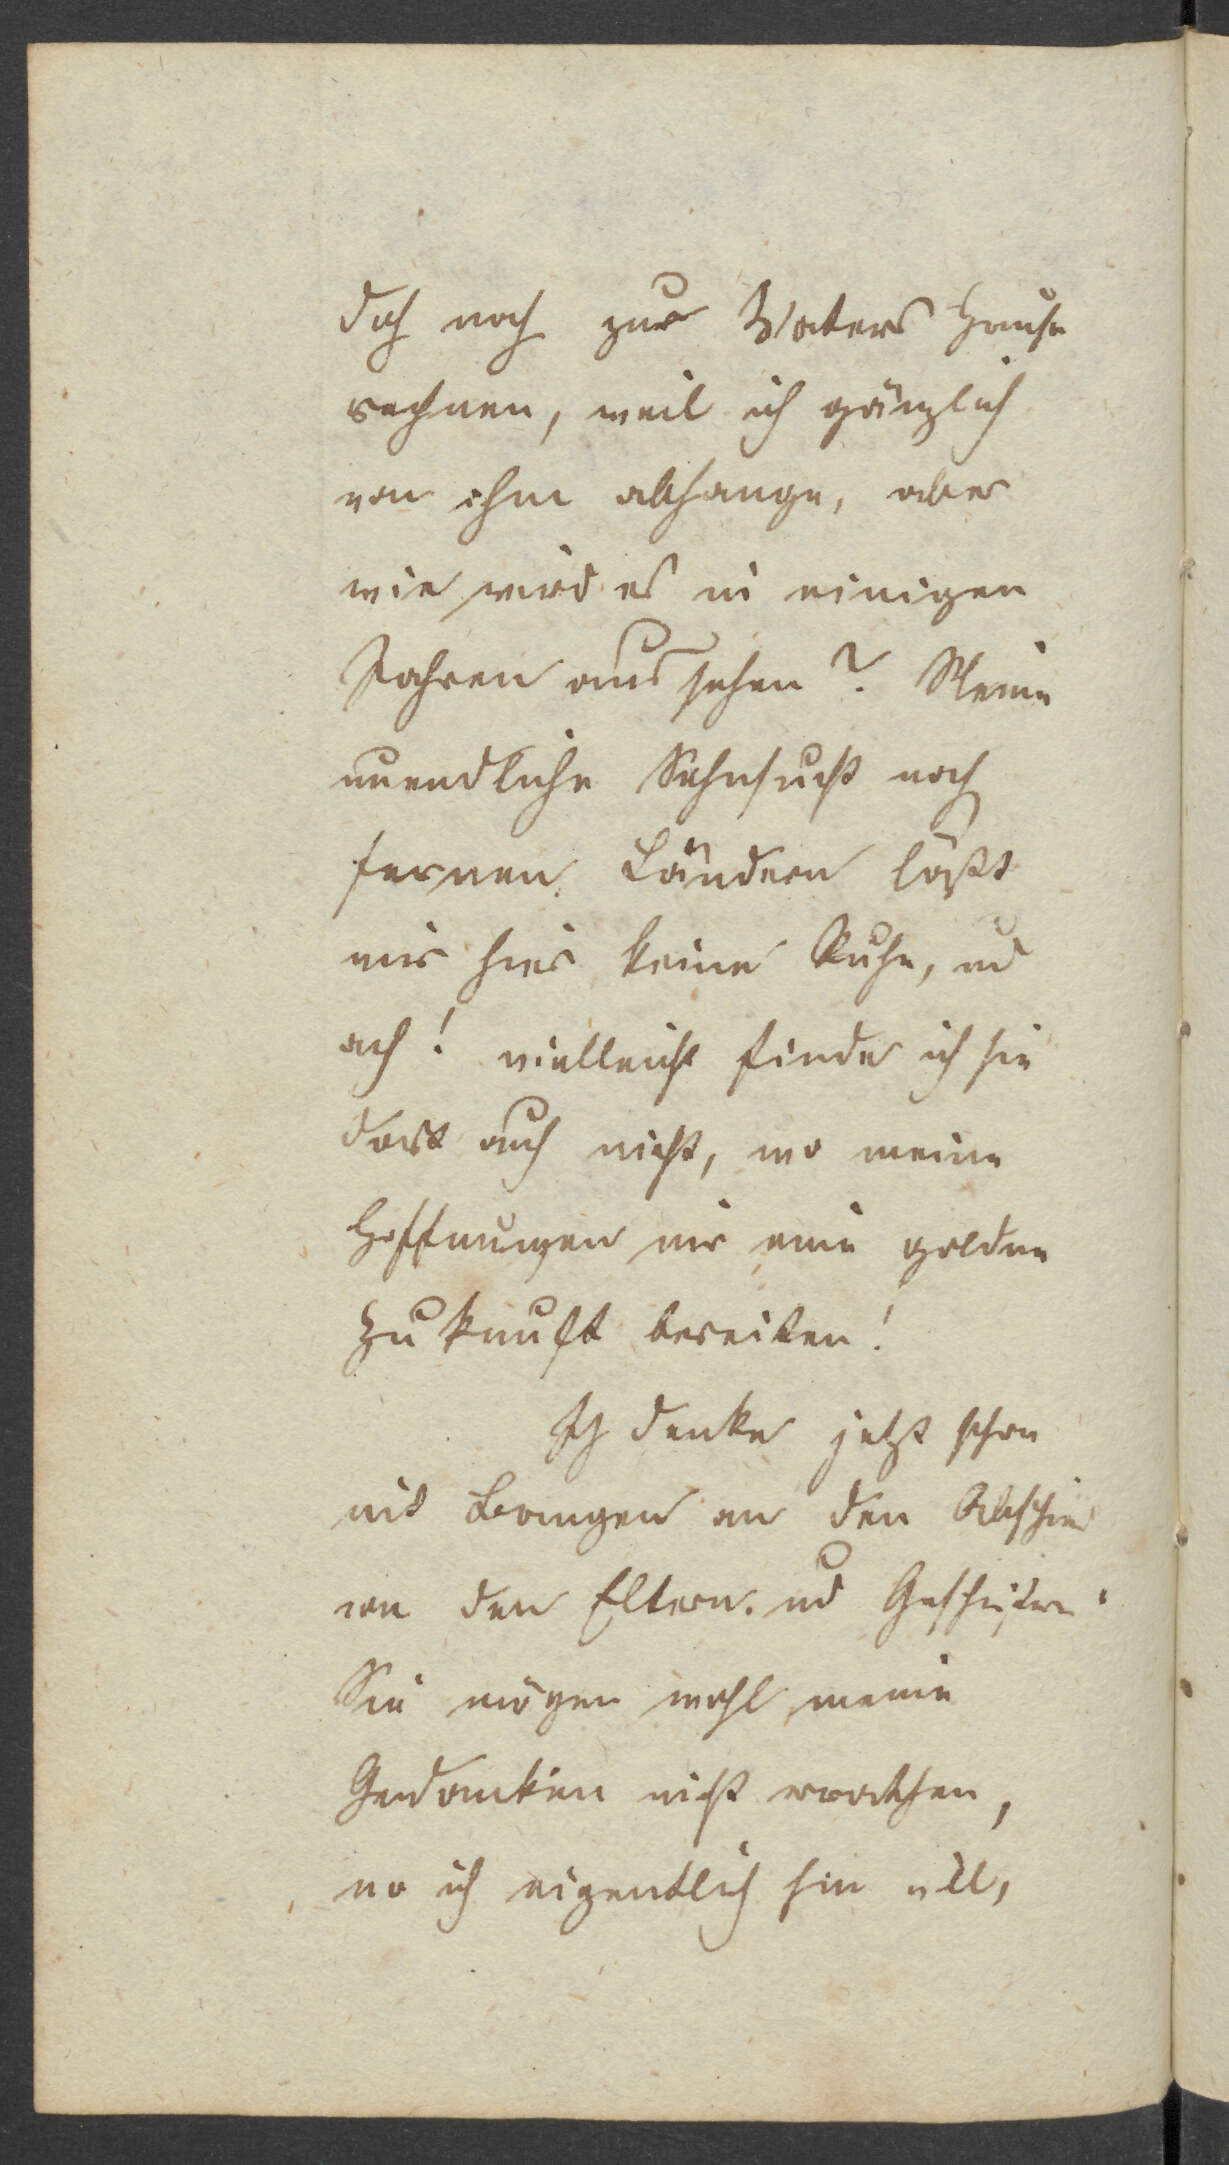 doch noch zur Vaters Hause
rechnen, weil ich gänzlich
von ihm abhange, aber
wie wird es in einigen
Jahren aussehen? Meine
unendliche Sehnsucht nach
fernen Ländern läßt
mir hier keine Ruhe, und
ach! vielleicht finde ich sie
dort auch nicht, wo meine
Hoffnungen mir eine goldne
Zukunft bereiten!
Ich denke jetzt schon
mit Bangen an den Abschied
von den Eltern und Geschwistern.
Sie mögen wohl meine
Gedanken nicht errathen,
wo ich eigentlich hin will,